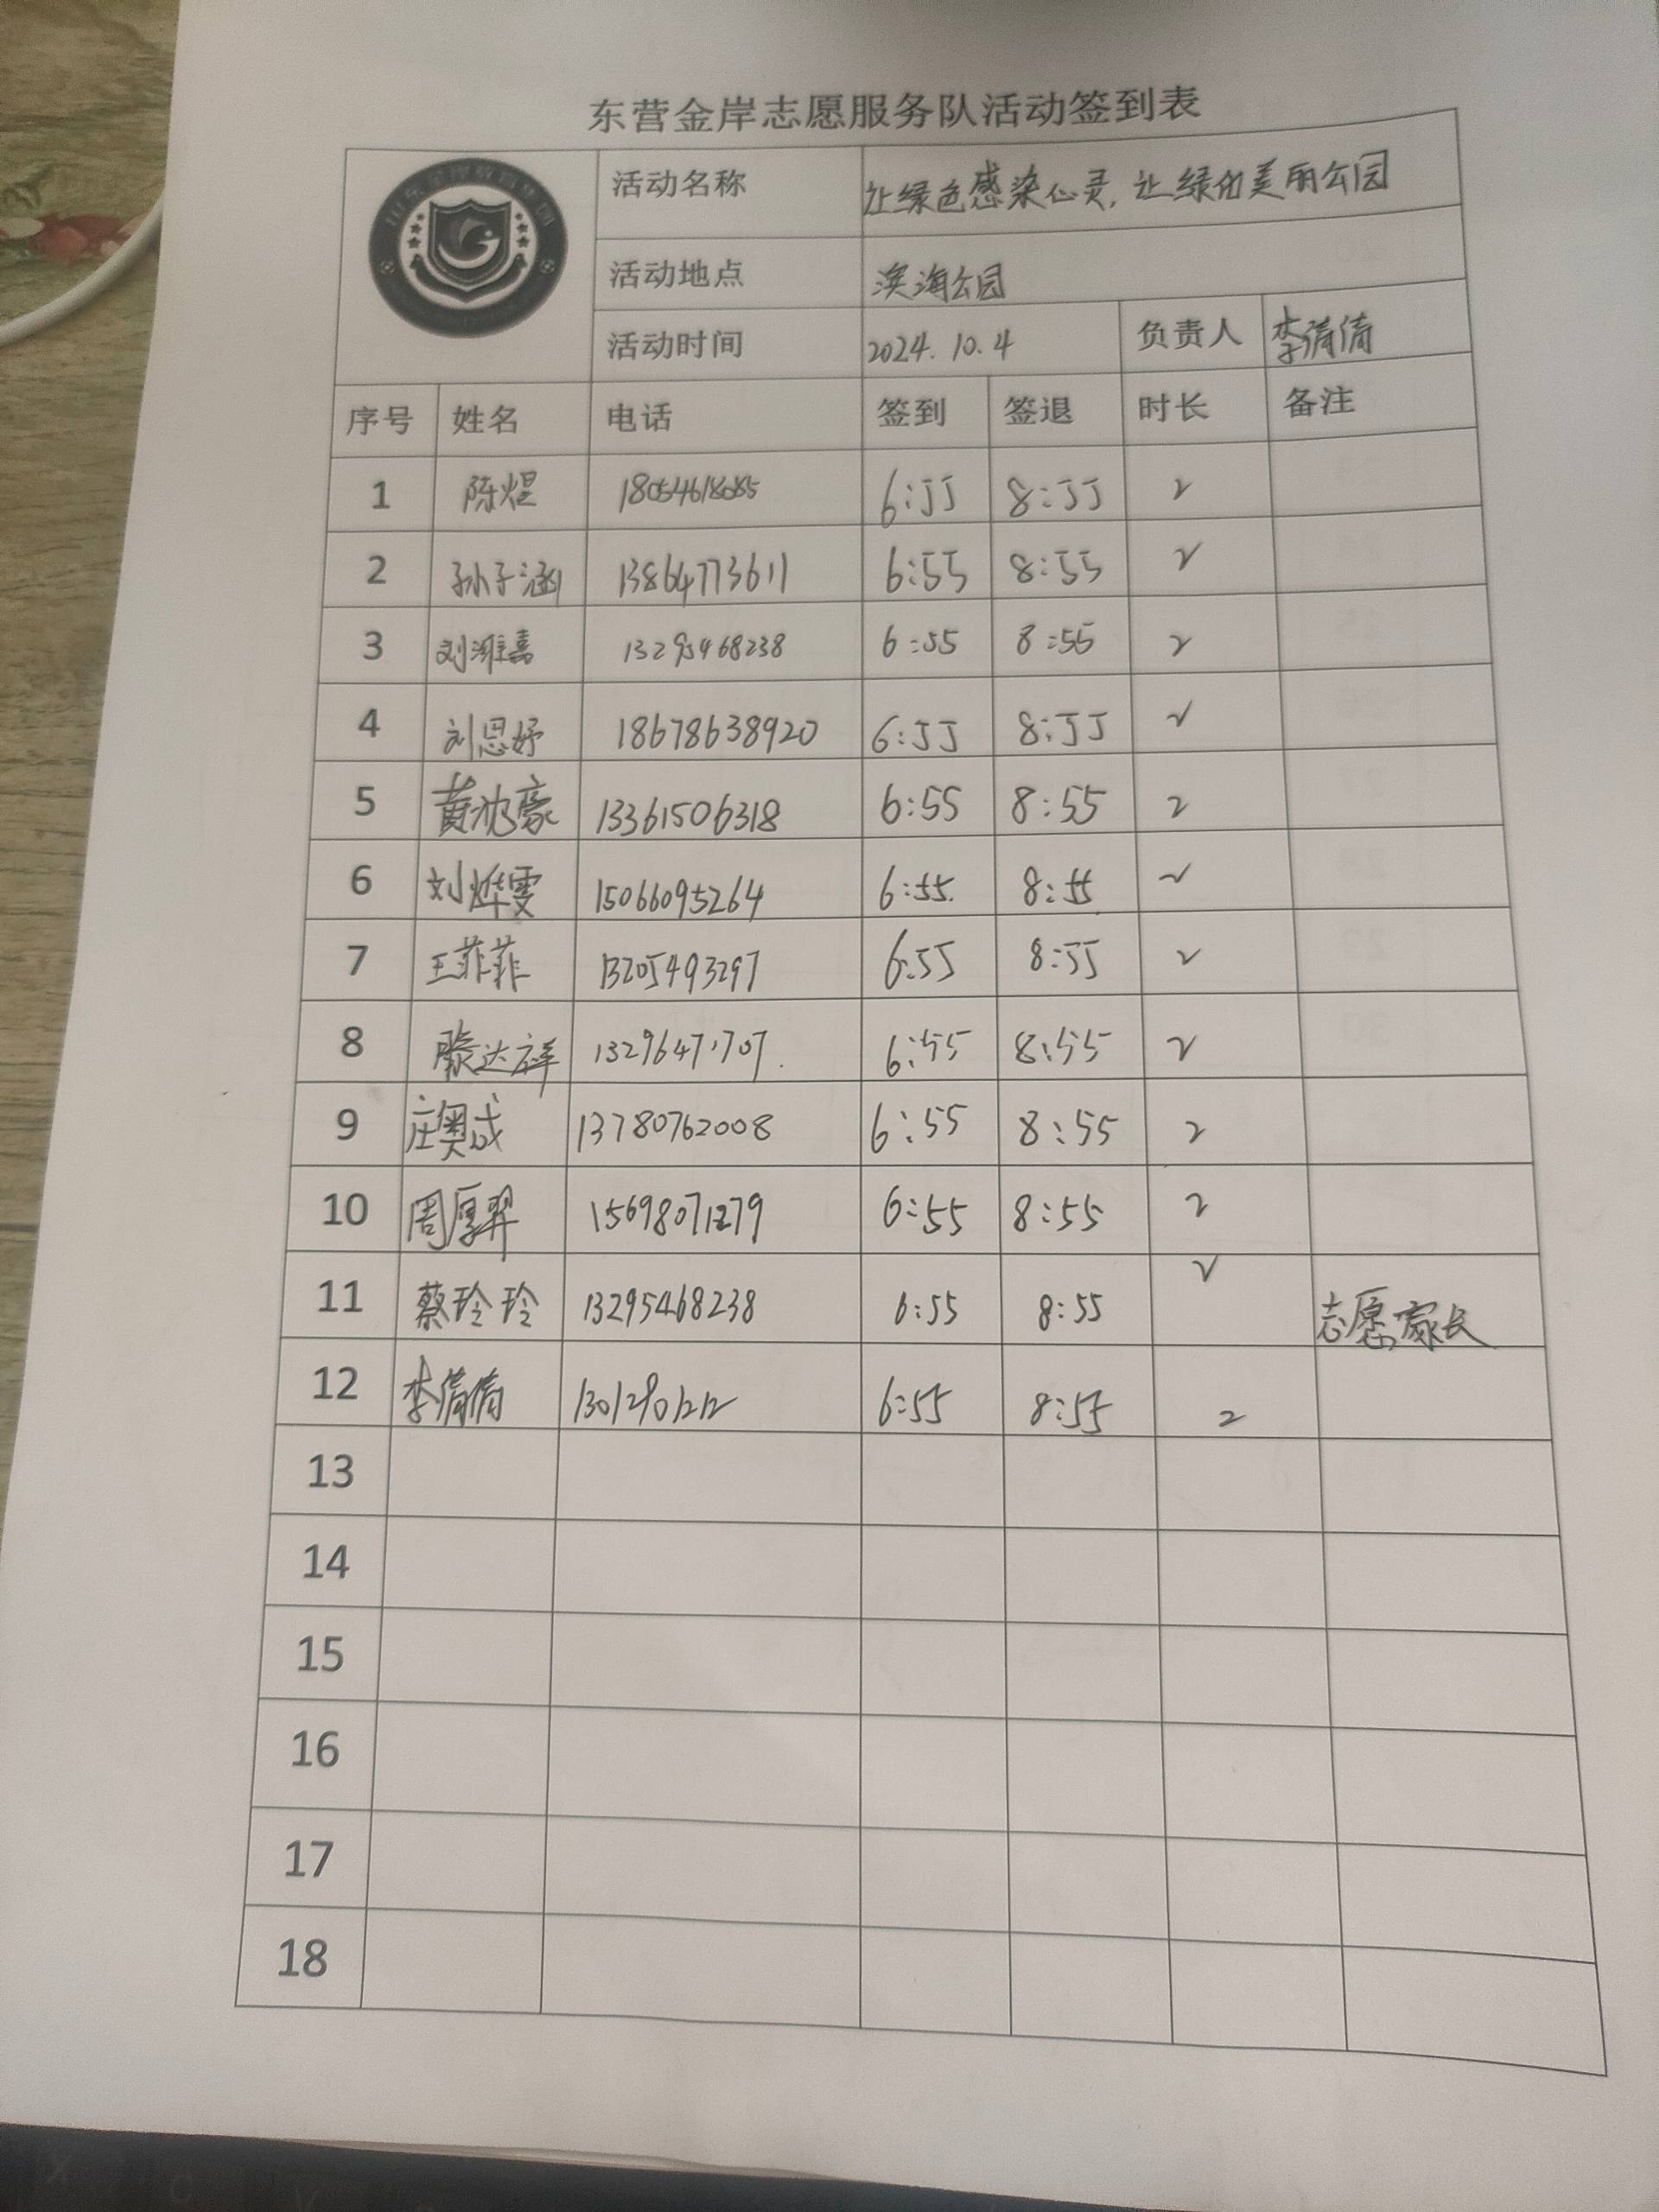 东营金岸志愿服务队活动签到表
活动名称 让绿色感染心灵,让绿化美丽公园
活动地点 滨海公园
活动时间 2024.10.4 负责人 李倩倩
序号 姓名 电话 签到 签退 时长 备注
1 陈煜 18054618085 6:55 8:55 2
2 孙子涵 13864773611 6:55 8:55 2
3 刘潍嘉 13295468238 6:55 8:55 2
4 刘恩妤 18678638920 6:55 8:55 2
5 黄沈豪 13361506318 6:55 8:55 2
6 刘烨雯 15066095264 6:55 8:55 2
7 王菲菲 13205493297 6:55 8:55 2
8 滕达祥 13296471707 6:55 8:55 2
9 庄奥成 13780762008 6:55 8:55 2
10 周厚羿 15698071279 6:55 8:55 2
11 蔡玲玲 13295468238 6:55 8:55 2 志愿家长
12 李倩倩 6:55 8:55 2
13
14
15
16
17
18